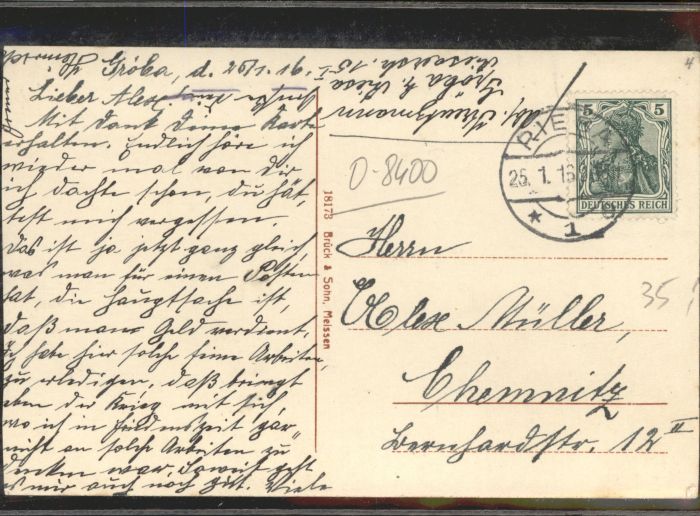 Gröba, d. 26/1. 16.
Lieber Alex
Mit Dank Deine Karte
erhalten. Endlich höre ich
wieder mal von dir
ich dachte schon, du hät,
test mich vergessen.
Das ist ja jetzt ganz gleich
was man für einen Posten
hat, die Hauptsache ist,
daß man Geld verdient,
Ich habe hier solche feine Arbeiten,
zu erledigen, daß bringt
eben der Krieg mit sich,
wo ich in Friedenszeit gar
nicht an solche Arbeiten zu
denken war. Soweit geht
es mir auch noch gut. Viele
Abs.
Gröba b. Riesa
18173 Brück & Sohn, Meissen
O-8400
RIESA
25. 1. 16
* 1
5 5
DEUTSCHES REICH
Herrn
Alex Müller,
Chemnitz
Bernhardstr. 12 II
35